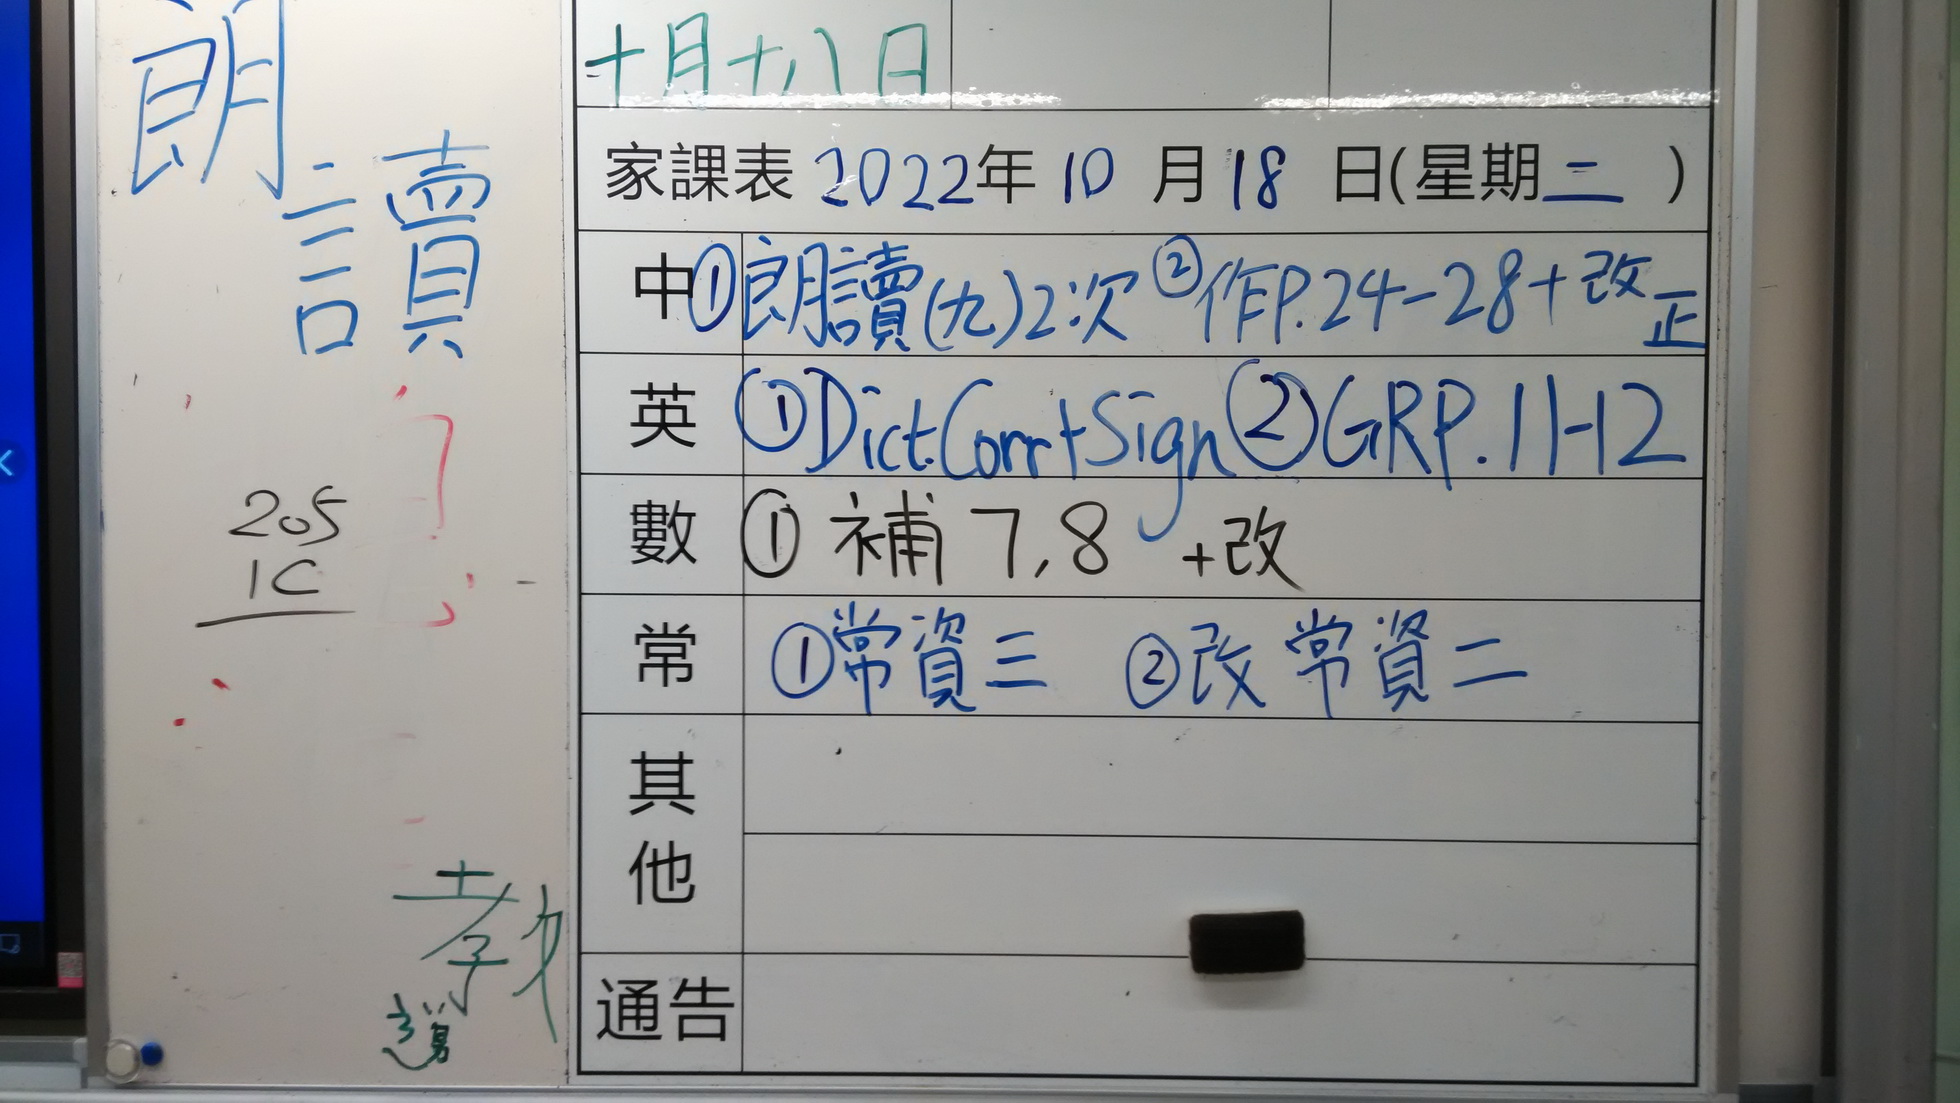 朗讀
205
1C
教
導
十月十八日
家課表 2022年 10 月 18 日(星期二)
中 ①朗讀(九)2次 ②作P.24-28+改正
英 ①Dict.Corr+Sign ②GRP.11-12
數 ① 補 7,8 +改
常 ①常資三 ②改常資二
其他
通告